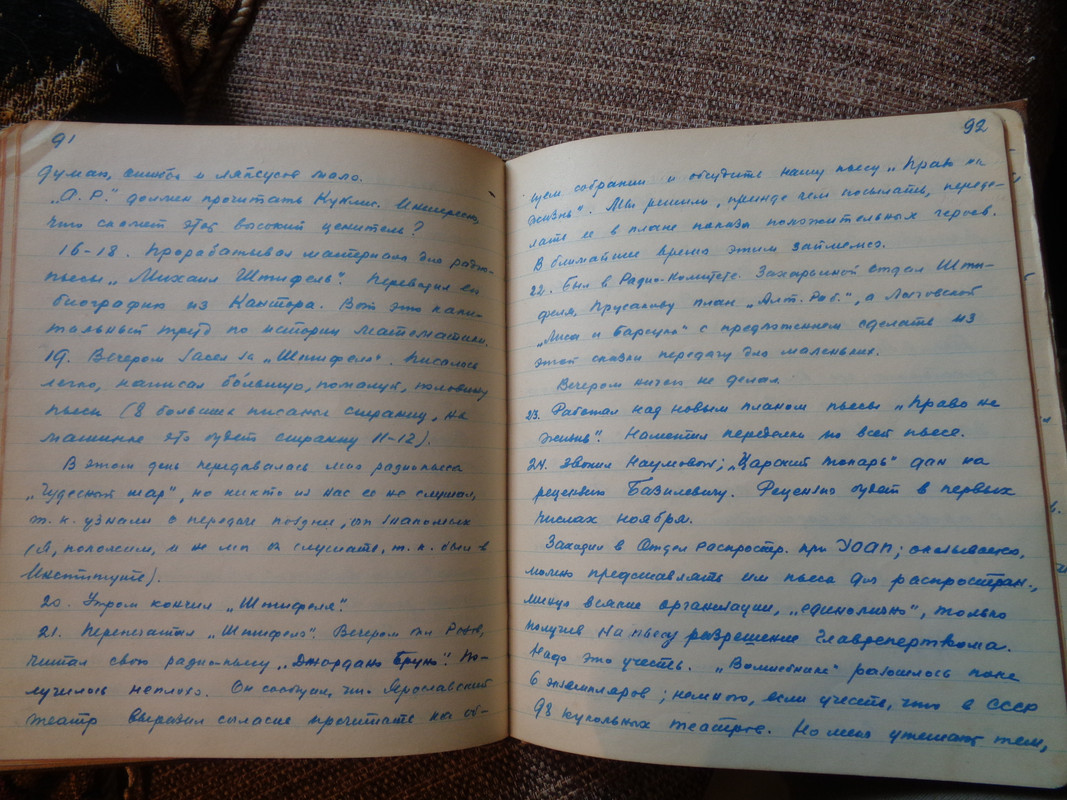 91
думаю, ошибок и ляпсусов мало.
„А. Р." должен прочитать Куклис. Интересно,
что скажет этот высокий ценитель?
16-18. Прорабатывал материал для радио-
пьесы „Михаил Штифель". Переводил его
биографию из Кантора. Вот это капи-
тальный труд по истории математики.
19. Вечером засел за „Штифеля". Писалось
легко, написал бо́льшую, пожалуй, половину
пьесы (8 больших писаных страниц, на
машинке это будет страниц 11-12).
В этот день передавалась моя радиопьеса
„Чудесный шар", но никто из нас ее не слушал,
т. к. узнали о передаче поздно, от знакомых
(Я, положим, и не мог бы слушать, т. к. был в
Институте).
20. Утром кончил „Штифеля".
21. Перепечатал „Штифеля". Вечером был Розов,
читал свою радио-пьесу „Джордано Бруно". По-
лучилось неплохо. Он сообщил, что Ярославский
театр выразил согласие прочитать на об-
92
щем собрании и обсудить нашу пьесу „Право на
жизнь". Мы решили, прежде чем посылать, переде-
лать ее в плане показа положительных героев.
В ближайшее время этим займемся.
22. Был в Радио-Комитете. Захарьиной отдал Шти-
феля, Прусакову план „Алт. Роб.", а Лыговской
„Лиса и барсук" с предложением сделать из
этой сказки передачу для маленьких.
Вечером ничего не делал.
23. Работал над новым планом пьесы „Право на
жизнь". Наметил переделки по всей пьесе.
24. Звонил Наумовой; „Царский токарь" дан на
рецензию Базилевичу. Рецензия будет в первых
числах ноября.
Заходил в Отдел распростр. при УОАП; оказывается,
можно представлять им пьесы для распростран.,
минуя всякие организации, „единолично", только
получив на пьесу разрешение Главреперткома.
Надо это учесть. „Волшебника" разошлось пока
6 экземпляров; немного, если учесть, что в СССР
98 кукольных театров. Но меня утешают тем,